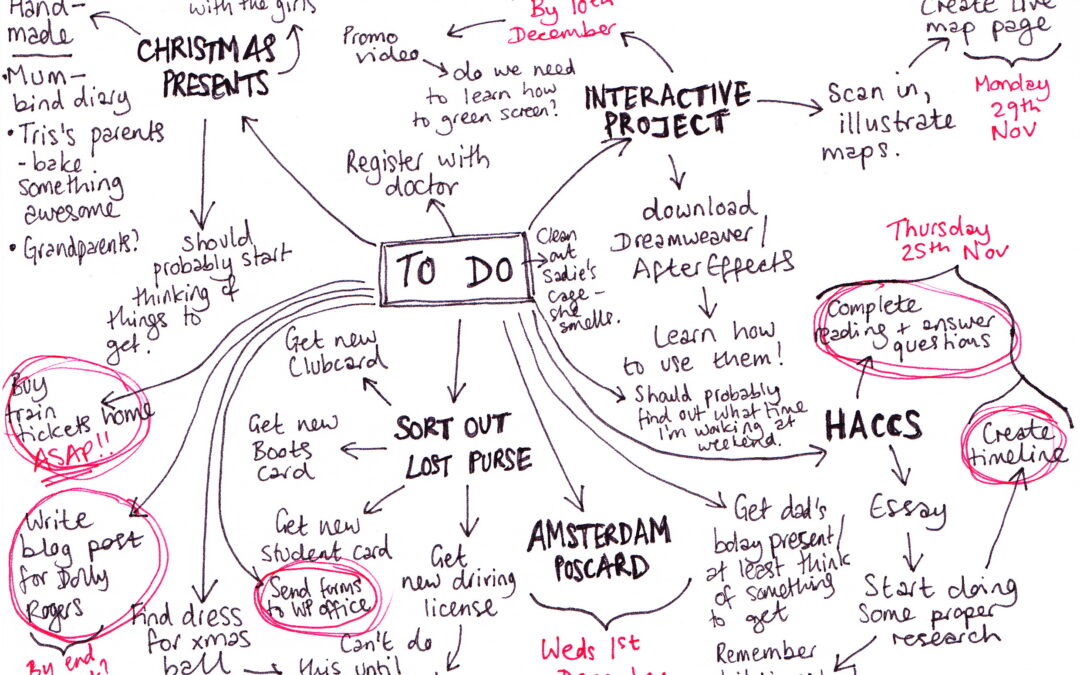 Hand-
made
with the girls
CHRISTMAS
PRESENTS
• Mum -
bind diary
• Tris's parents
- bake
something
awesome
• Grandparents?
should
probably start
thinking of
things to
get.
By 10th
December
Promo
video
do we need
to learn how
to green screen?
INTERACTIVE
PROJECT
Scan in,
illustrate
maps.
Create live
map page
Monday
29th
Nov
Register with
doctor
download
Dreamweaver/
After Effects
Learn how
to use them!
TO DO
Clean
out
Sadie's
cage -
she
smells.
Should probably
find out what time
I'm waking at
weekend.
Thursday
25th Nov
Complete
reading + answer
questions
HACCS
Create
timeline
Essay
Start doing
some proper
research
Remember
Get dad's
bday present/
at least think
of something
to get
AMSTERDAM
POSCARD
Weds 1st
December
SORT OUT
LOST PURSE
Get new
Clubcard
Get new
Boots
card
Get new
student card
Send forms
to WP office
Get
new driving
license
Can't do
this until
Buy
train
tickets home
ASAP!!
Write
blog post
for Dolly
Rogers
By end
Find dress
for xmas
ball